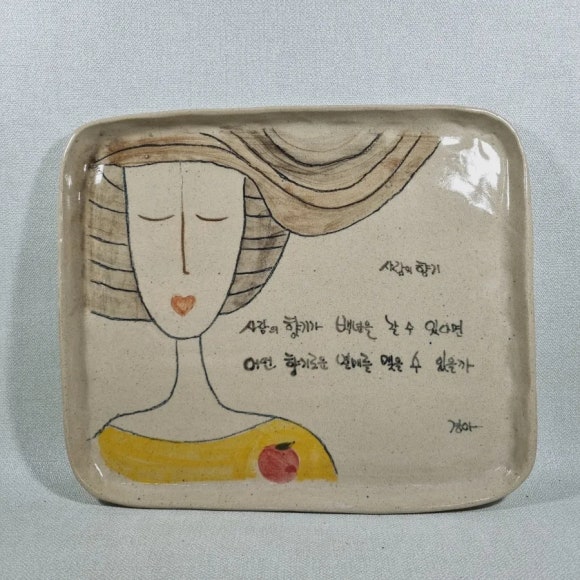 사람의 향기
사람의 향기가 백년을 갈 수 있다면
어떤 향기로운 열매를 맺을 수 있을까
경아